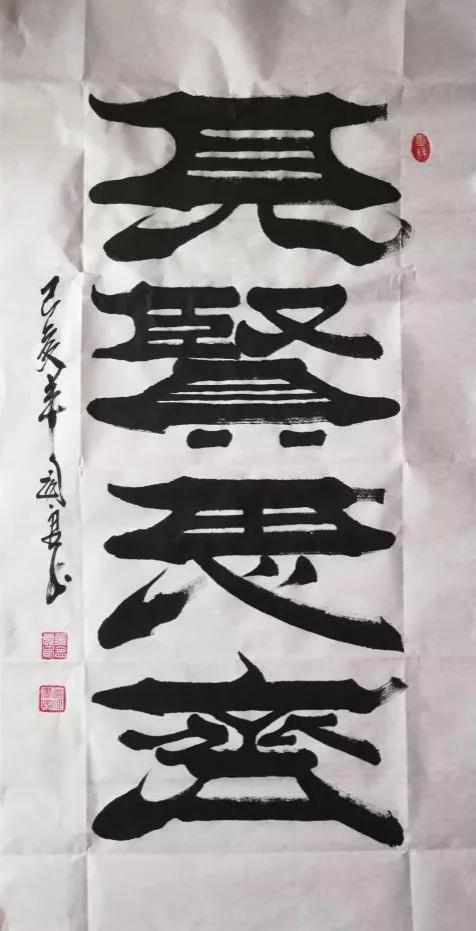 見賢思齊
己亥年